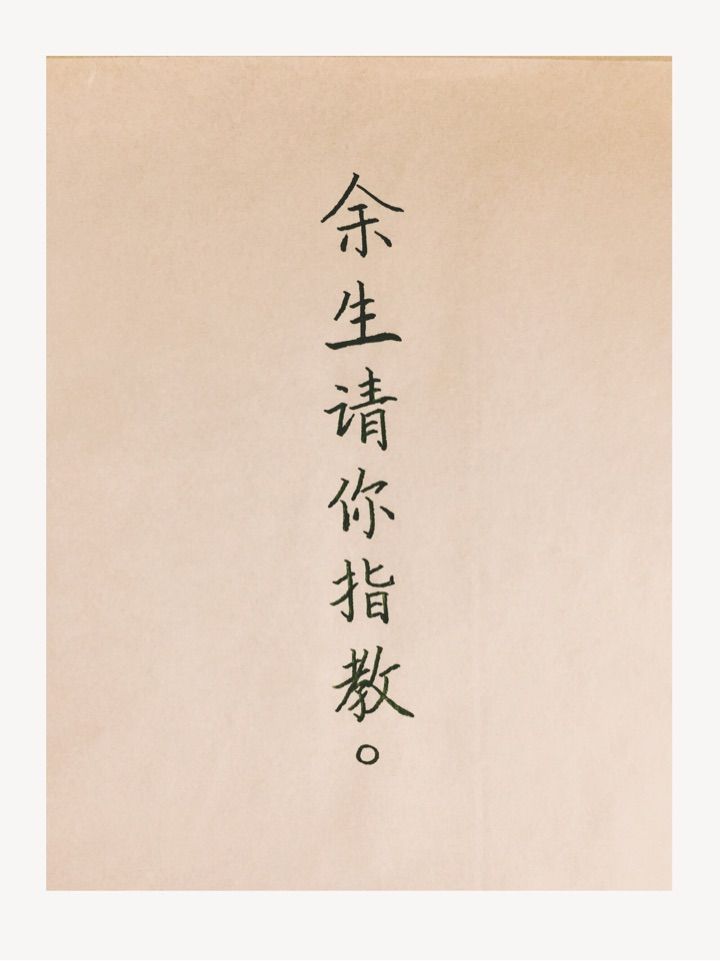 余生请你指教。